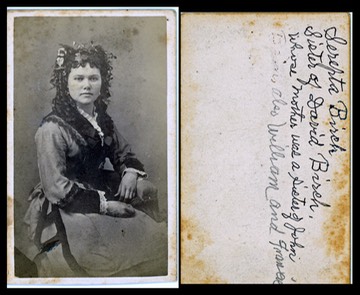 Serepta Birch
Sister of David Birch,
whose mother was a sister of John
also William and